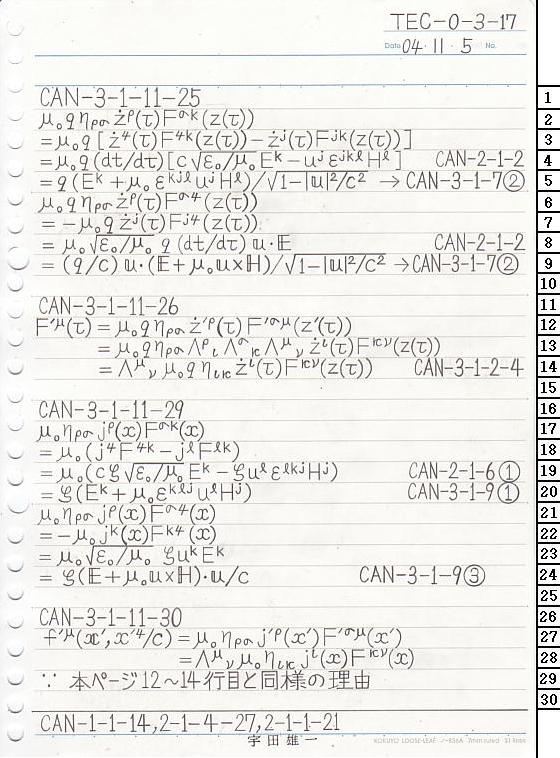 TEC-0-3-17
Date 04・11・5 No.
CAN-3-1-11-25
μ₀qη_ρσ ż^ρ(τ)F^σk(z(τ))
=μ₀q[ż⁴(τ)F^4k(z(τ))-ż^j(τ)F^jk(z(τ))]
=μ₀q(dt/dτ)[c√ε₀/μ₀ E^k-u^j ε^jkl H^l] CAN-2-1-2
=q(E^k+μ₀ε^kjl u^j H^l)/√1-|u|²/c² →CAN-3-1-7②
μ₀qη_ρσ ż^ρ(τ)F^σ4(z(τ))
=-μ₀q ż^j(τ)F^j4(z(τ))
=μ₀√ε₀/μ₀ q(dt/dτ)u・E CAN-2-1-2
=(q/c)u・(E+μ₀u×H)/√1-|u|²/c² →CAN-3-1-7②
CAN-3-1-11-26
F'^μ(τ)=μ₀qη_ρσ ż'^ρ(τ)F'^σμ(z'(τ))
=μ₀qη_ρσ Λ^ρ_ι Λ^σ_κ Λ^μ_ν ż^ι(τ)F^κν(z(τ))
=Λ^μ_ν μ₀qη_ικ ż^ι(τ)F^κν(z(τ)) CAN-3-1-2-4
CAN-3-1-11-29
μ₀η_ρσ j^ρ(x)F^σk(x)
=μ₀(j⁴F^4k-j^l F^lk)
=μ₀(cξ√ε₀/μ₀ E^k-ξu^l ε^lkj H^j) CAN-2-1-6①
=ξ(E^k+μ₀ε^klj u^l H^j) CAN-3-1-9①
μ₀η_ρσ j^ρ(x)F^σ4(x)
=-μ₀j^k(x)F^k4(x)
=μ₀√ε₀/μ₀ ξu^k E^k
=ξ(E+μ₀u×H)・u/c CAN-3-1-9③
CAN-3-1-11-30
f'^μ(x',x'⁴/c)=μ₀η_ρσ j'^ρ(x')F'^σμ(x')
=Λ^μ_ν μ₀η_ικ j^ι(x)F^κν(x)
∵ 本ページ12~14行目と同様の理由
CAN-1-1-14,2-1-4-27,2-1-1-21
宇田雄一
KOKUYO LOOSE-LEAF ノ-836A 7mm ruled 31 lines
1
2
3
4
5
6
7
8
9
10
11
12
13
14
15
16
17
18
19
20
21
22
23
24
25
26
27
28
29
30